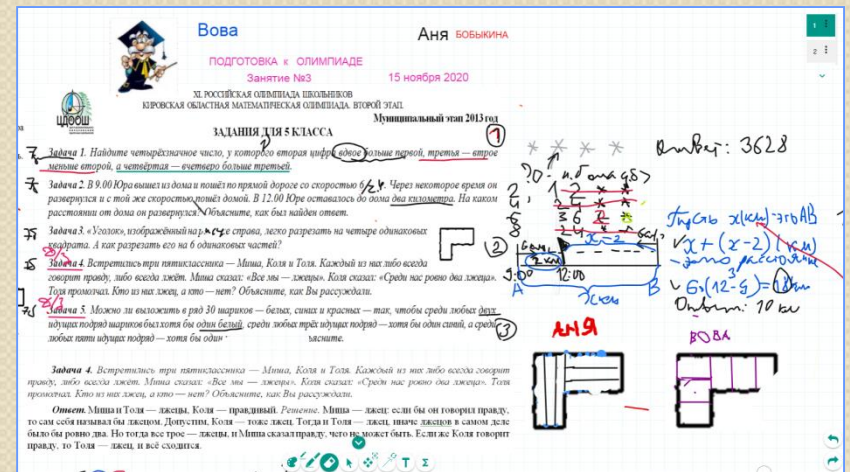 Вова
Аня БОБЫКИНА
ПОДГОТОВКА к ОЛИМПИАДЕ
Занятие №3 15 ноября 2020
ЦДООШ
XI. РОССИЙСКАЯ ОЛИМПИАДА ШКОЛЬНИКОВ
КИРОВСКАЯ ОБЛАСТНАЯ МАТЕМАТИЧЕСКАЯ ОЛИМПИАДА. ВТОРОЙ ЭТАП.
Муниципальный этап 2013 год
ЗАДАНИЯ ДЛЯ 5 КЛАССА
Задача 1. Найдите четырёхзначное число, у которого вторая цифра вдвое больше первой, третья — втрое
меньше второй, а четвёртая — вчетверо больше третьей.
Задача 2. В 9.00 Юра вышел из дома и пошёл по прямой дороге со скоростью 6
Через некоторое время он
развернулся и с той же скоростью пошёл домой. В 12.00 Юре оставалось до дома два километра. На каком
расстоянии от дома он развернулся? Объясните, как был найден ответ.
Задача 3. «Уголок», изображённый на справа, легко разрезать на четыре одинаковых
квадрата. А как разрезать его на 6 одинаковых частей?
Задача 4. Встретились три пятиклассника — Миша, Коля и Толя. Каждый из них либо всегда
говорит правду, либо всегда лжёт. Миша сказал: «Все мы — лжецы». Коля сказал: «Среди нас ровно два лжеца».
Толя промолчал. Кто из них лжец, а кто — нет? Объясните, как Вы рассуждали.
Задача 5. Можно ли выложить в ряд 30 шариков — белых, синих и красных — так, чтобы среди любых двух
идущих подряд шариков был хотя бы один белый, среди любых трёх идущих подряд — хотя бы один синий, а среди
любых пяти идущих подряд — хотя бы один
Задача 4. Встретились три пятиклассника — Миша, Коля и Толя. Каждый из них либо всегда говорит
правду, либо всегда лжёт. Миша сказал: «Все мы — лжецы». Коля сказал: «Среди нас ровно два лжеца». Толя
промолчал. Кто из них лжец, а кто — нет? Объясните, как Вы рассуждали.
Ответ. Миша и Толя — лжецы, Коля — правдивый. Решение. Миша — лжец: если бы он говорил правду,
то сам себя называл бы лжецом. Допустим, Коля — тоже лжец. Тогда и Толя — лжец, иначе лжецов в самом деле
было бы ровно два. Но тогда все трое — лжецы, и Миша сказал правду, чего не может быть. Если же Коля говорит
правду, то Толя — лжец, и всё сходится.
1
* * * *
Ответ: 3628
2
Пусть x(км) - это AB
x + (x - 2) (км)
x - 2
2 км
9:00 12:00
A B
Ответ: 10 км
3
АНЯ
ВОВА
1
2